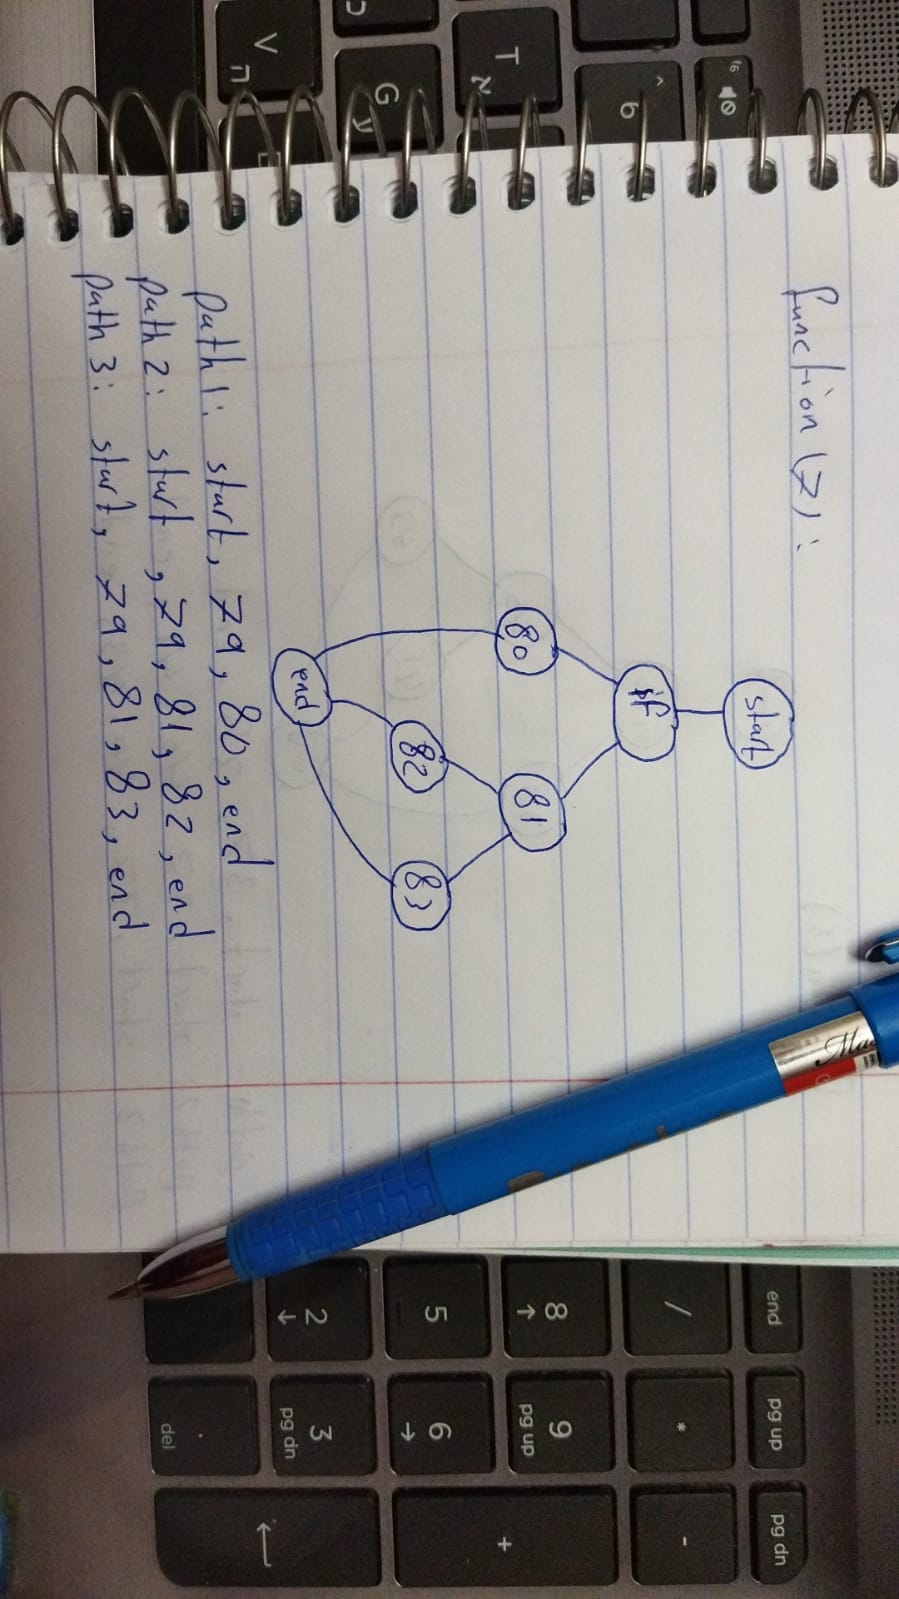 function (7):
start
if
80
81
82
83
end
path 1: start, 79, 80, end
path 2: start, 79, 81, 82, end
path 3: start, 79, 81, 83, end
V
ה
G
ע
T
א
^
6
f6
end
pg up
pg dn
/
*
-
8
↑
9
pg up
+
5
6
→
2
↓
3
pg dn
.
del
←